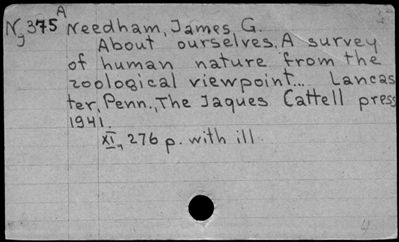 N, 375 A Needham, James, G.
J About ourselves. A survey
of human nature from the
zoological viewpoint... Lancas
ter, Penn., The Jaques Cattell press
1941.
XI, 276 p. with ill.
4